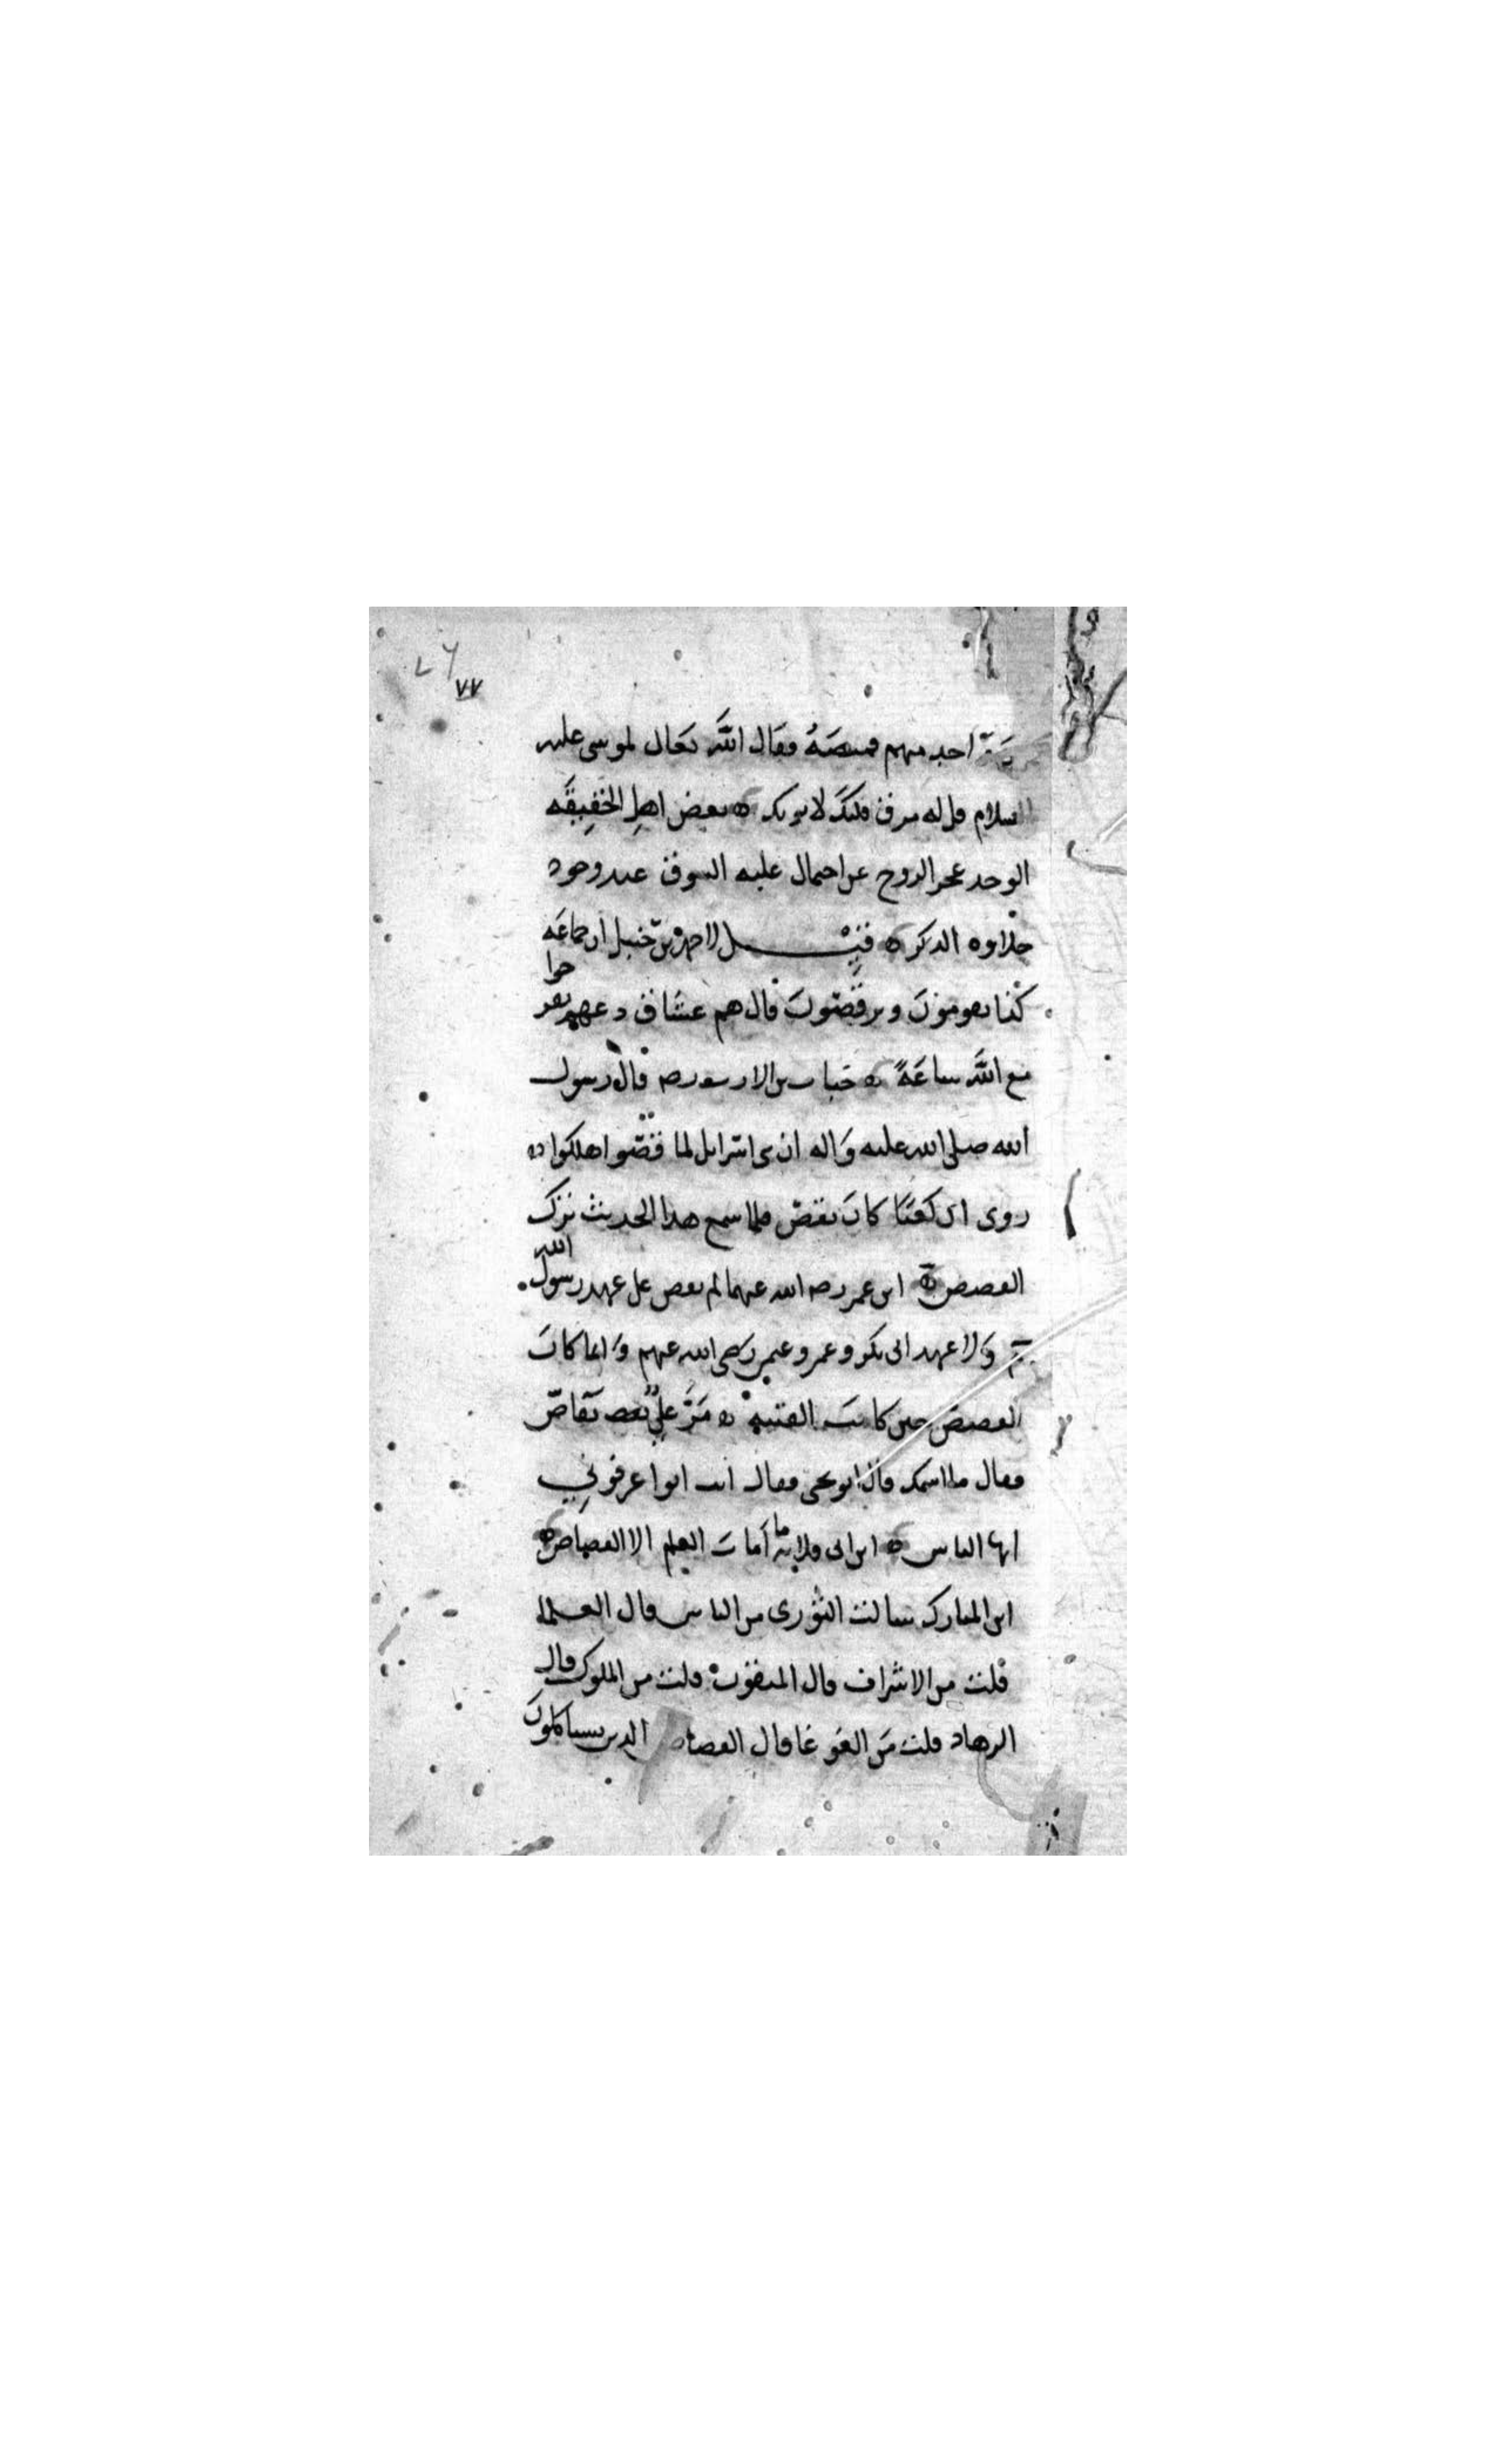 ٧٧
احد منهم قميصه فقال الله تعال لموسى عليه
السلام قل له مزق قلبك لا ثوبك ه بعض اهل الحقيقه
الوجد عجز الروح عن احتمال غلبه الشوق عند وجود
حلاوه الذكر ه قيل لاحمد بن حنبل ان جماعه
كذا يقومون ويرقصون قال هم عشاق دعهم يفرحوا
مع الله ساعة ه خباب بن الارت رضه قال رسول
الله صلى الله عليه واله ان بنى اسرايل لما قصّوا هلكوا ه
روى ان كعبًا كان يقصّ فلما سمع هذا الحديث ترك
القصص ه ابن عمر رضه الله عنهما لم يقص على عهد رسول الله
ولا عهد ابى بكر وعمر وعثمن رضى الله عنهم وانما كان
القصص حين كانت الفتنه ه مَرَّ علىّ بقاصّ
فقال ما اسمك قال ابو يحيى فقال انت ابوا عرفوني
ايها الناس ه ابن ابى قلابه ما اَمات العلم الا القصاص ه
ابن المبارك سالت الثورى من الناس قال العلما
قلت من الاشراف قال المتقون قلت من الملوك قال
الزهاد قلت من الغوغا قال القصاص الذين يستاكلون